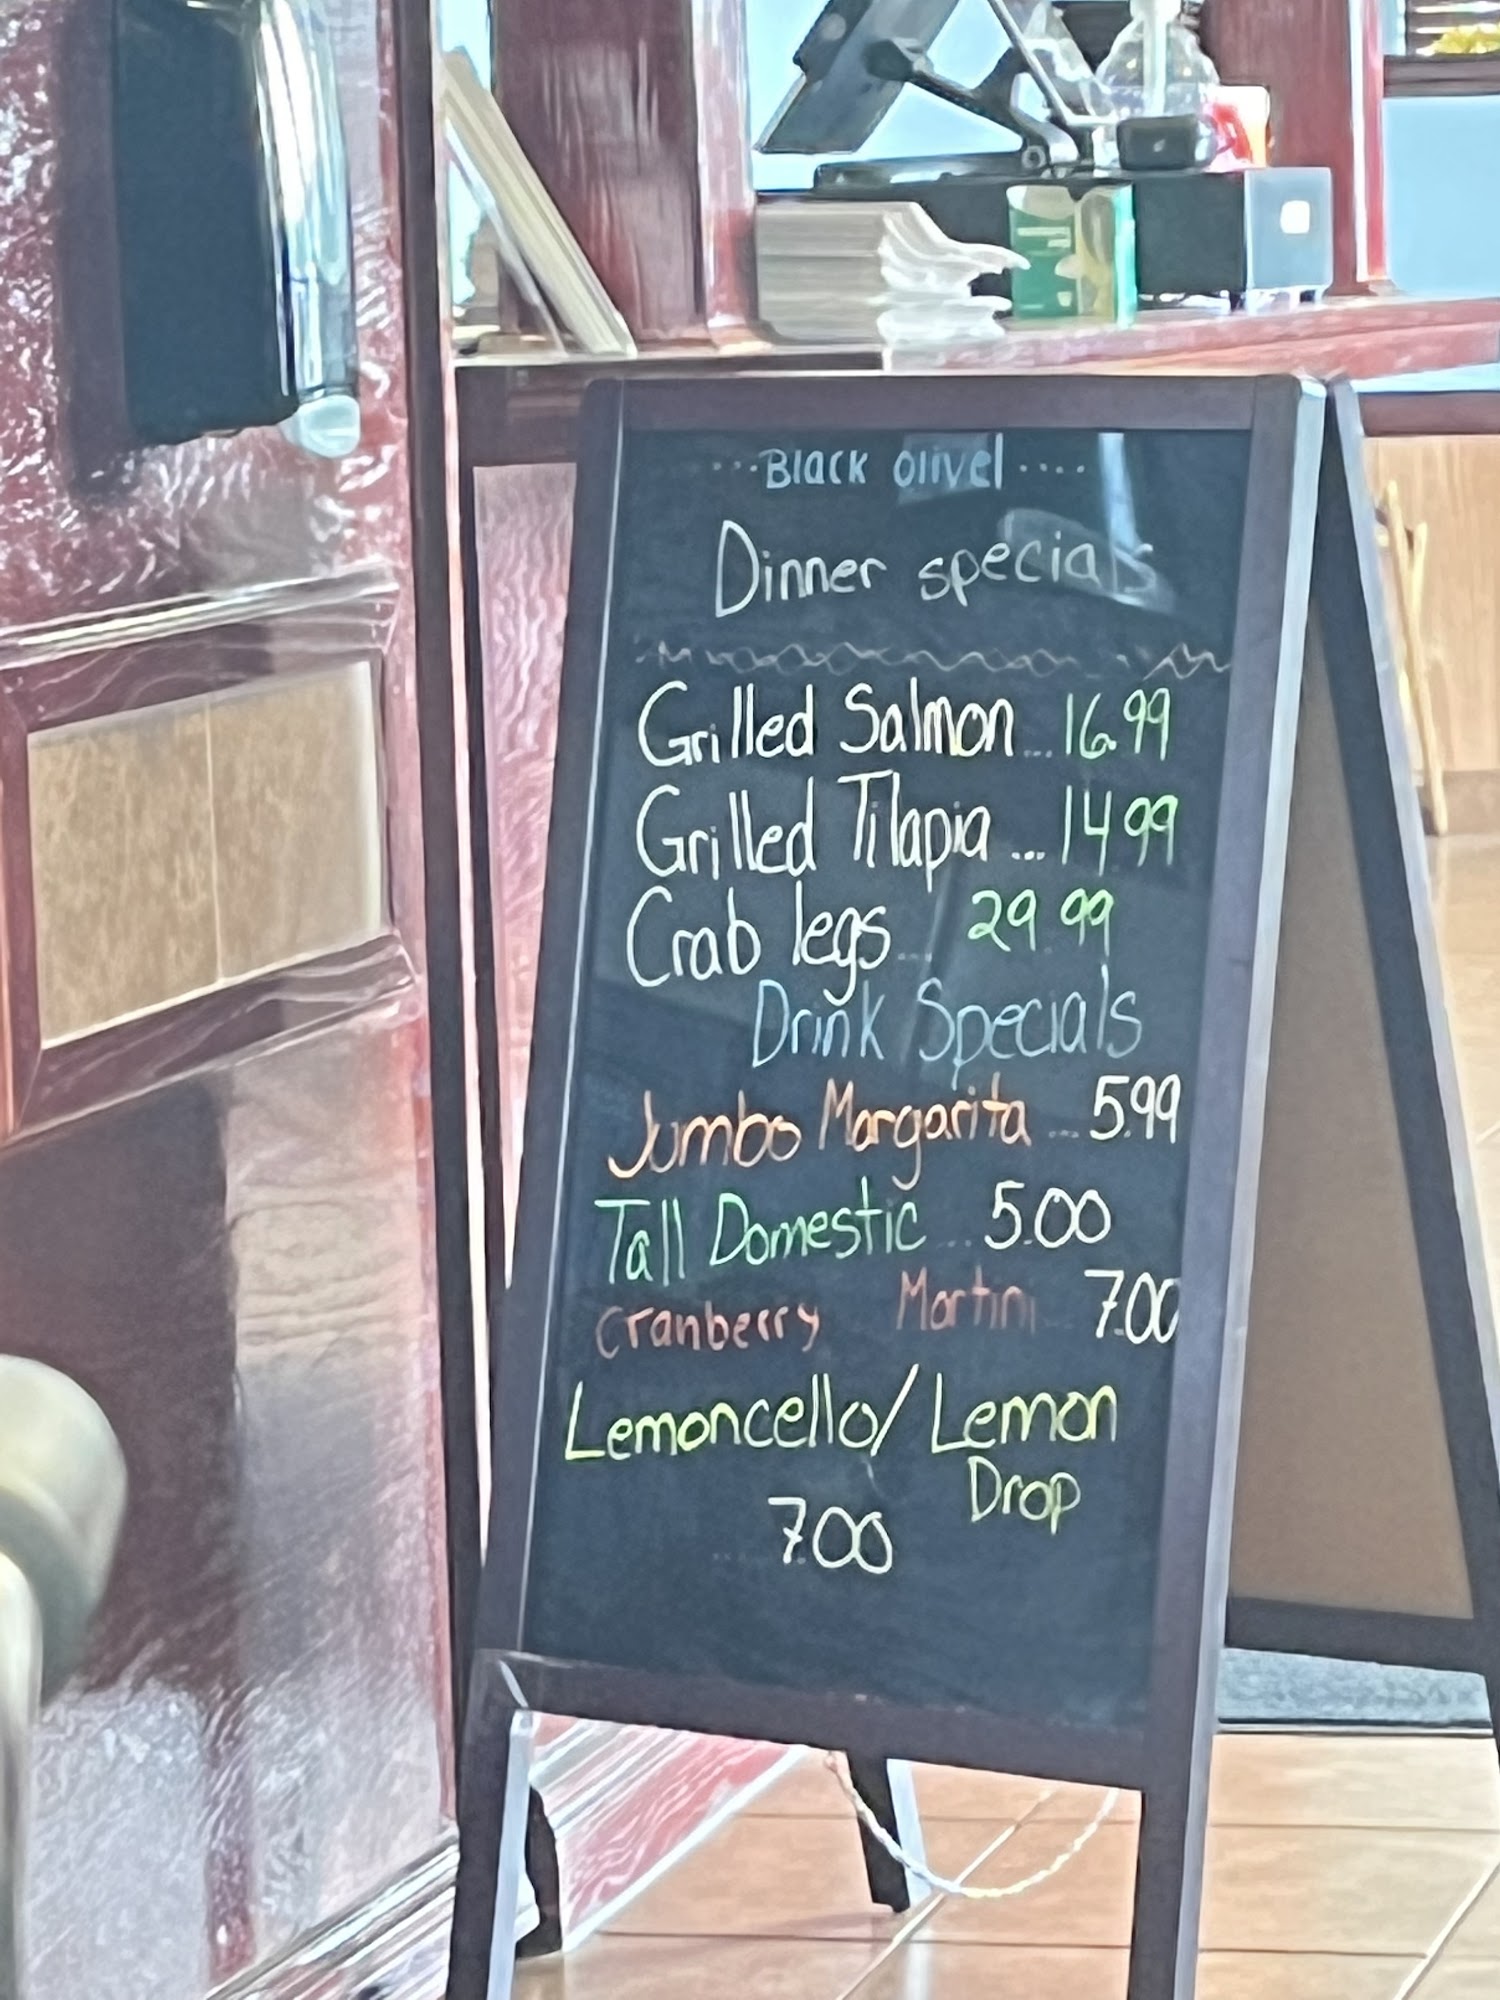 ...Black Olive!....
Dinner specials
Grilled Salmon...16.99
Grilled Tilapia...14.99
Crab legs...29.99
Drink Specials
Jumbo Margarita...5.99
Tall Domestic...5.00
Cranberry Martini...7.00
Lemoncello/Lemon
Drop
7.00